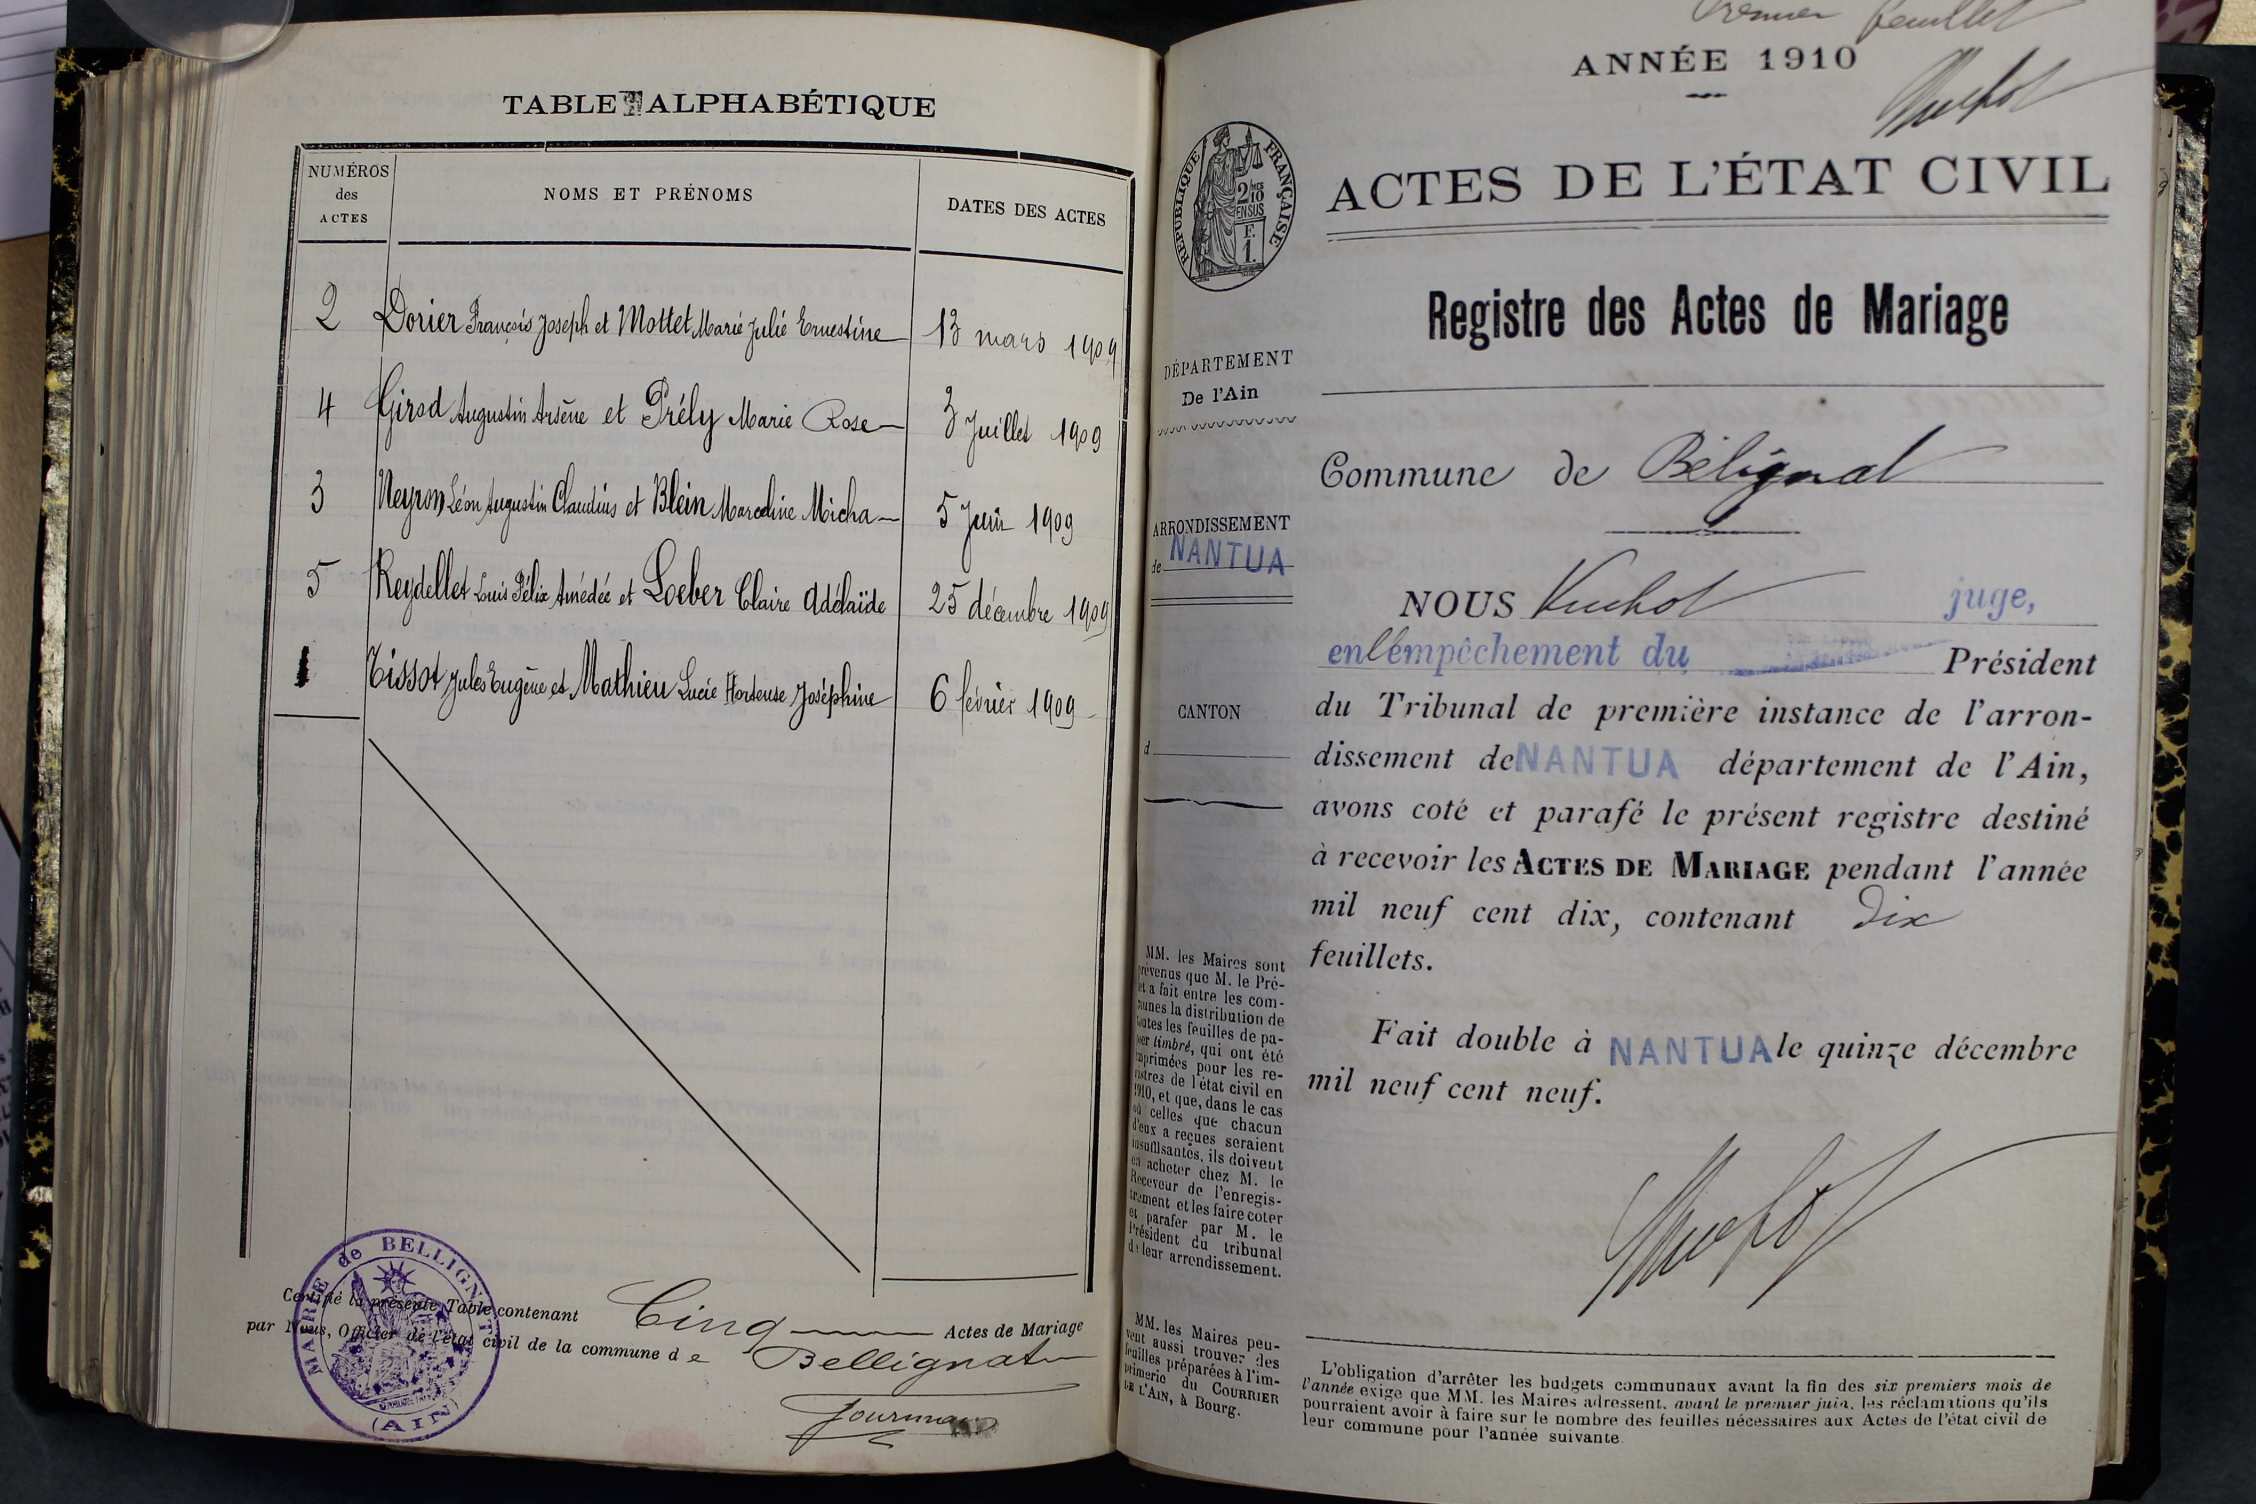 TABLE ALPHABÉTIQUE
NUMÉROS
des
ACTES
NOMS ET PRÉNOMS
DATES DES ACTES
2 Dorier François Joseph et Mottet Marie Julie Ernestine 13 mars 1909
4 Girod Augustin Arsène et Prély Marie Rose 3 Juillet 1909
3 Neyron Léon Augustin Claudius et Blein Marceline Micha 5 Juin 1909
5 Reydellet Louis Félix Amédée et Loeber Claire Adélaïde 25 décembre 1909
1 Tissot Jules Eugène et Mathieu Lucie Hortense Joséphine 6 février 1909
Certifié la présente Table contenant Cinq Actes de Mariage
par Nous, Officier de l'état civil de la commune de Bellignat
MAIRIE de BELLIGNAT
(AIN)
Premier feuillet
ANNÉE 1910
ACTES DE L'ÉTAT CIVIL
RÉPUBLIQUE FRANÇAISE
2/10
EN SUS
F.
1.
Registre des Actes de Mariage
DÉPARTEMENT
De l'Ain
Commune de Bélignat
ARRONDISSEMENT
de NANTUA
CANTON
d
NOUS Vuchot juge,
en l'empêchement du Président
du Tribunal de première instance de l'arron-
dissement de NANTUA département de l'Ain,
avons coté et parafé le présent registre destiné
à recevoir les ACTES DE MARIAGE pendant l'année
mil neuf cent dix, contenant Dix
feuillets.
Fait double à NANTUA le quinze décembre
mil neuf cent neuf.
MM. les Maires sont
prévenus que M. le Pré-
fet a fait entre les com-
munes la distribution de
toutes les feuilles de pa-
pier timbré, qui ont été
imprimées pour les re-
gistres de l'état civil en
1910, et que, dans le cas
où celles que chacun
d'eux a reçues seraient
insuffisantes, ils doivent
en acheter chez M. le
Receveur de l'enregis-
trement et les faire coter
et parafer par M. le
Président du tribunal
de leur arrondissement.
MM. les Maires peu-
vent aussi trouver des
feuilles préparées à l'im-
primerie du COURRIER
DE L'AIN, à Bourg.
L'obligation d'arrêter les budgets communaux avant la fin des six premiers mois de
l'année exige que MM. les Maires adressent, avant le premier juin, les réclamations qu'ils
pourraient avoir à faire sur le nombre des feuilles nécessaires aux Actes de l'état civil de
leur commune pour l'année suivante.